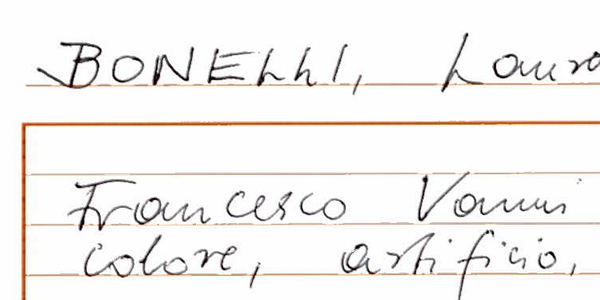 BONELLI, Laura
Francesco Vanni
colore, artificio,